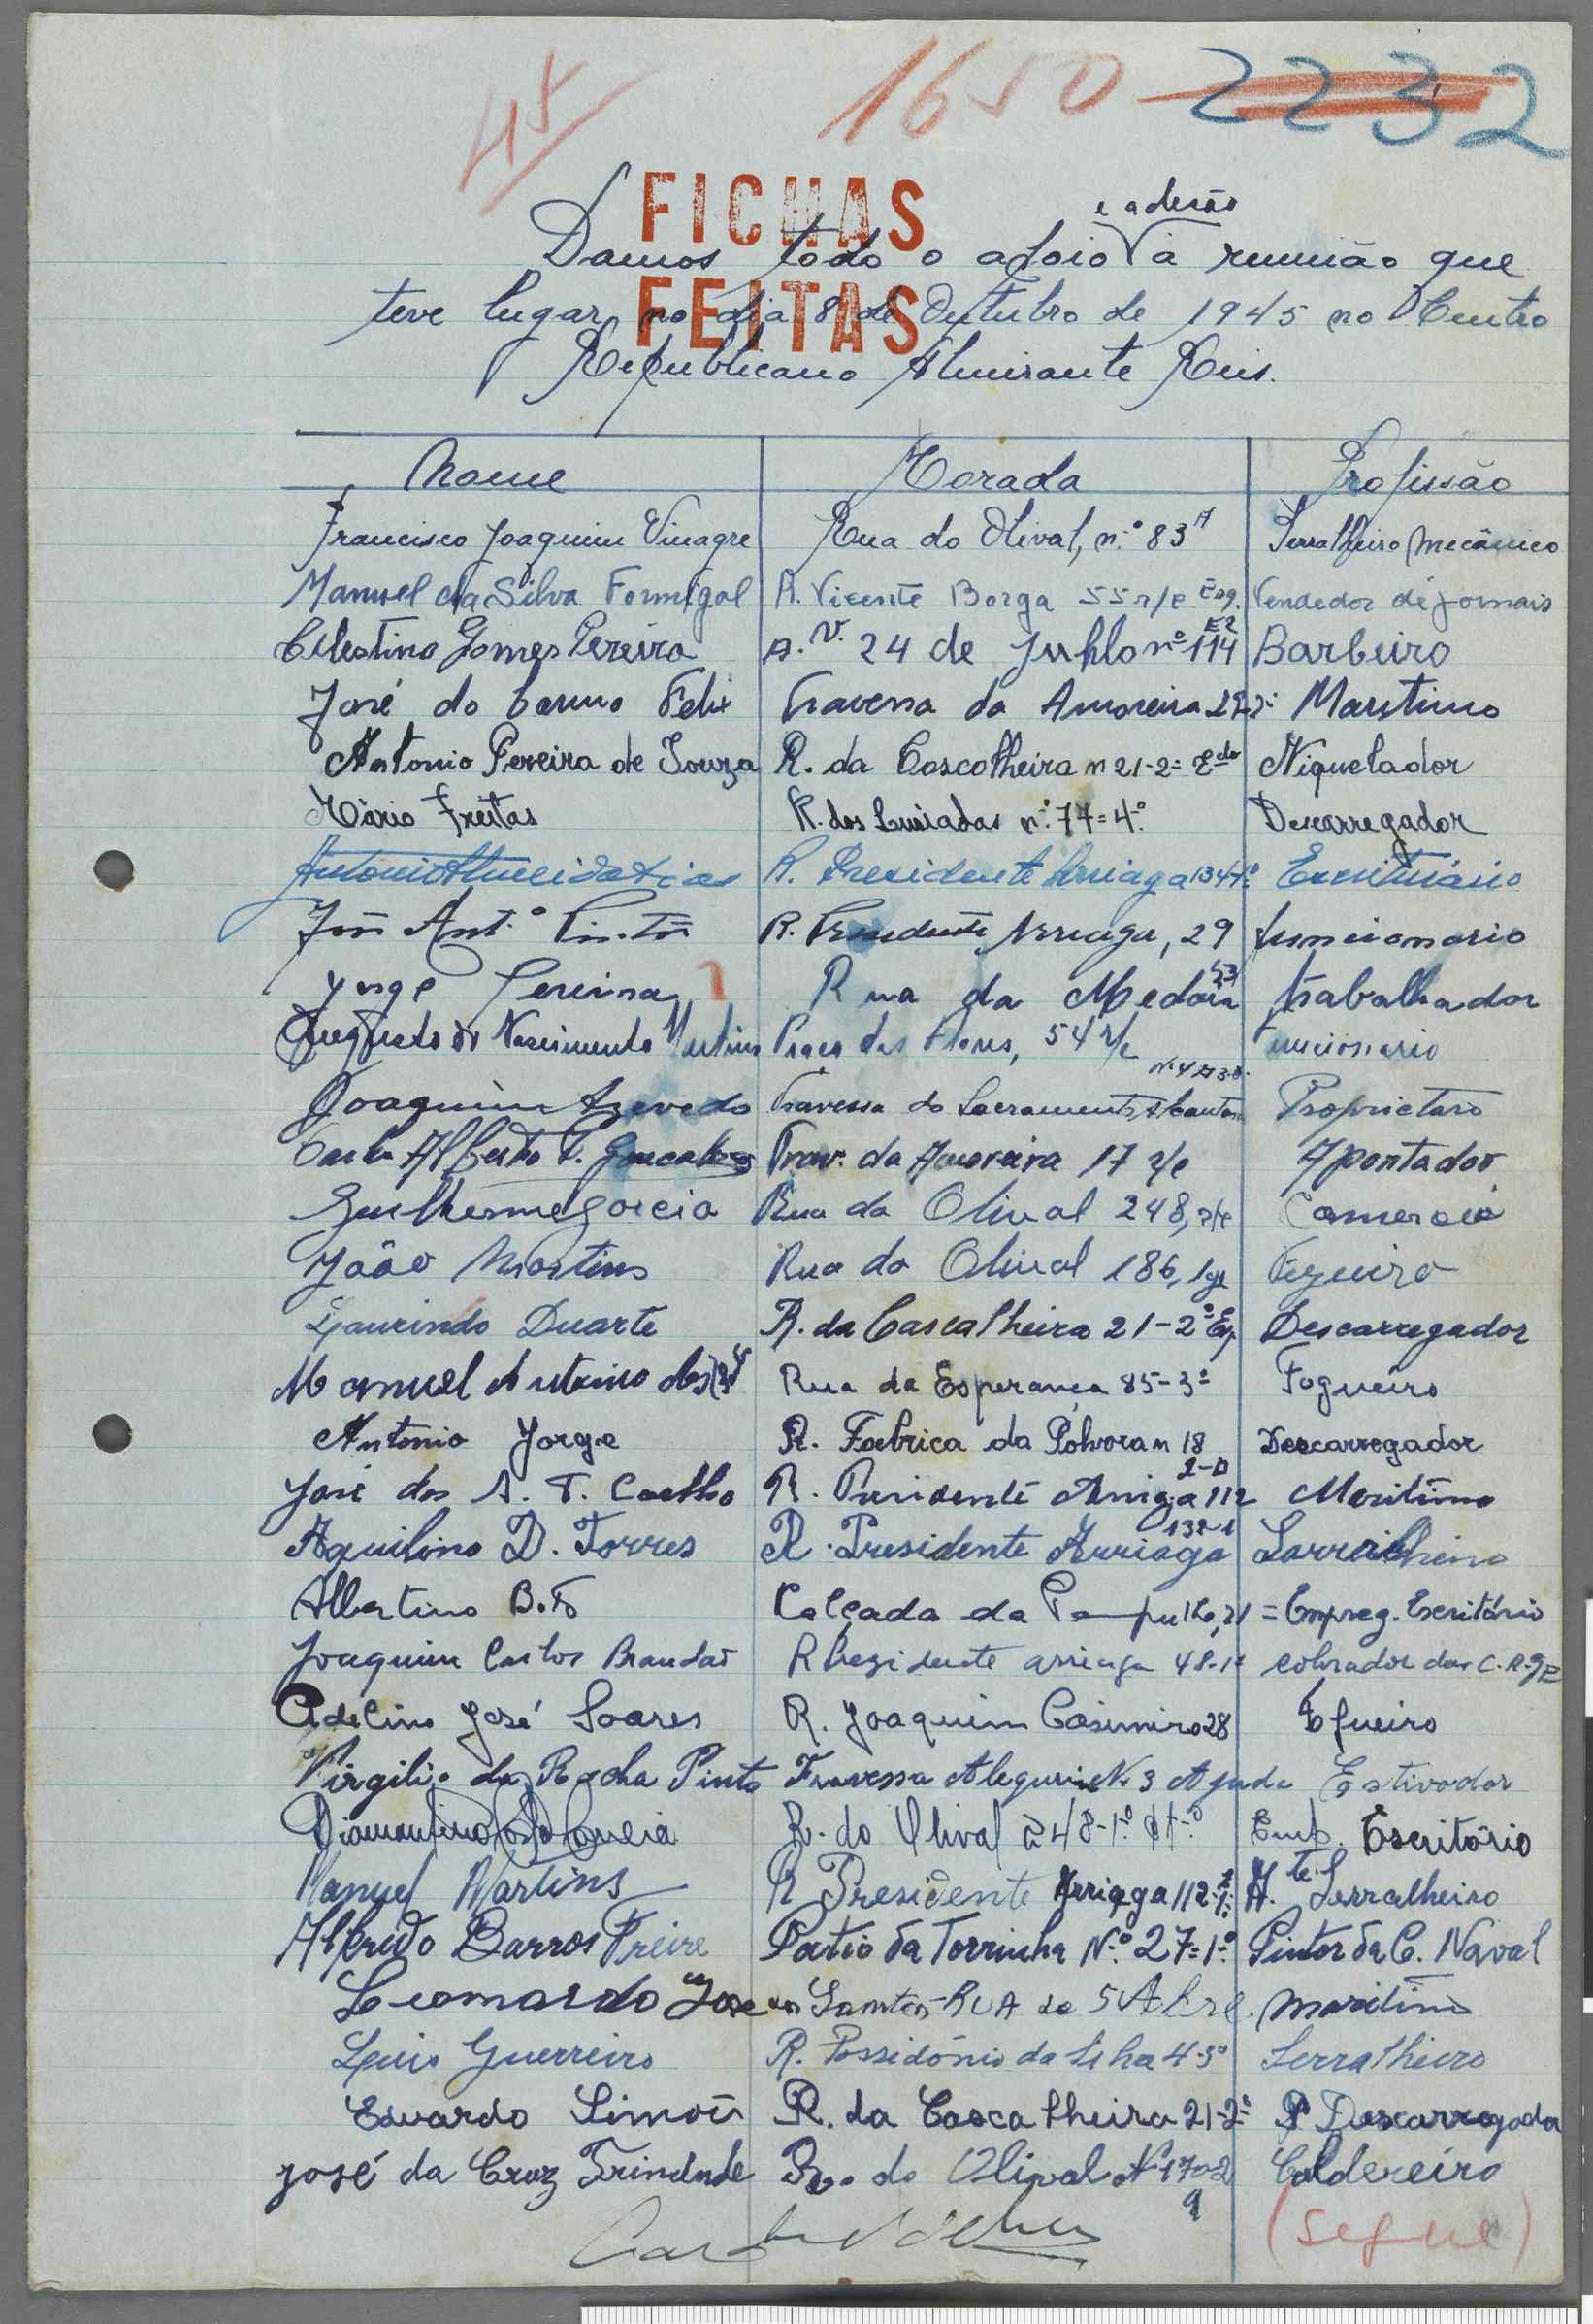 45
1650 2232
FICHAS
FEITAS
e adesão
Damos todo o apoio à reunião que
teve lugar no dia 8 de Outubro de 1945 no Centro
Republicano Almirante Reis.
Nome Morada Profissão
Francisco Joaquim Vinagre Rua do Olival, n.º 83 Serralheiro Mecânico
Manuel da Silva Formigal R. Vicente Borga 55 r/c Esq. Vendedor de jornais
Celestino Gomes Pereira A.V. 24 de Juhlo nº 114 Barbeiro
José do Carmo Felix Travessa da Amoreira Maritimo
Antonio Pereira de Souza R. da Cascolheira n 21-2º Niquelador
Mário Freitas R. dos Lusiadas n.º 77=4.º Descarregador
R. Presidente Arriaga Escriturário
Ant.º R. Presidente Arriaga, 29 funcionario
Jorge Pereira Rua da Medoia trabalhador
Augusto do Nascimento Martins Praça das Flores, 54 r/c Funcionario
Joaquim Azevedo Travessa do Sacramento Proprietaro
Alberto Gonçalves Trav. da Amoreira 17 r/c Apontador
Guilherme Garcia Rua do Olival 248, r/c Comercio
João Martins Rua do Olival 186, Fogueiro
Laurindo Duarte R. da Cascalheira 21-2º Esq. Descarregador
Manuel Antonio Rua da Esperança 85-3º Fogueiro
Antonio Jorge R. Fabrica da Pólvora n 18 Descarregador
José dos S. T. Coelho R. Presidente Arriaga 112 2-D Maritimo
Aquilino D. Torres R. Presidente Arriaga 132-1 Sarralheiro
Albertino Calçada da Pampulha, 21 = Empreg. Escritório
Joaquim Carlos Brandão R Presidente arriaga 48-1º cobrador das C.R.G.E
Adelino José Soares R. Joaquim Casimiro 28
Virgilio da Rocha Pinto Travessa Alegrim Nº 3 Ajuda Estivador
Diamantino Correia R. do Olival 248-1.º Emp. Escritório
Manuel Martins R Presidente Arriaga 112 A.te Serralheiro
Alfredo Barros Freire Patio da Torrinha N.º 27=1.º Pintor da C. Naval
Leonardo José dos Santos RUA de 5 Maritimo
Luis Guerreiro R. Possidónio da Silva 4-3º Serralheiro
Eduardo Simões R. da Cascalheira 21-2º Descarregador
José da Cruz Trindade do Olival Nº 170-2 Caldereiro
(segue)